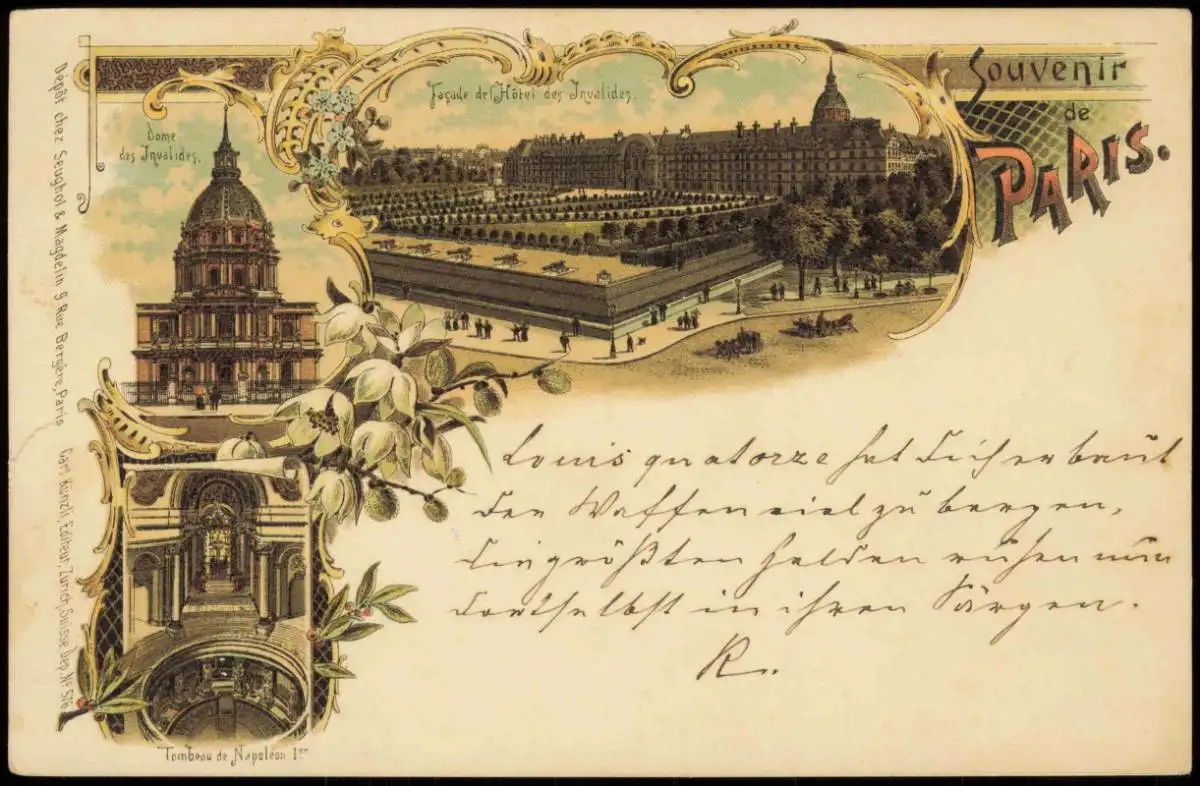 Souvenir
de
PARIS.
Façade de l'Hôtel des Invalides.
Dome
des Invalides.
Dépôt chez Seughol & Magdelin 9 Rue Bergère, Paris
Carl Künzli, Editeur, Zurich, Suisse, Dep. No 576
Louis quatorze hat dich erbaut
der Waffen viel zu bergen,
die größten Helden ruhen nun
dortselbst in ihren Särgen.
R.
Tombeau de Napoléon 1er